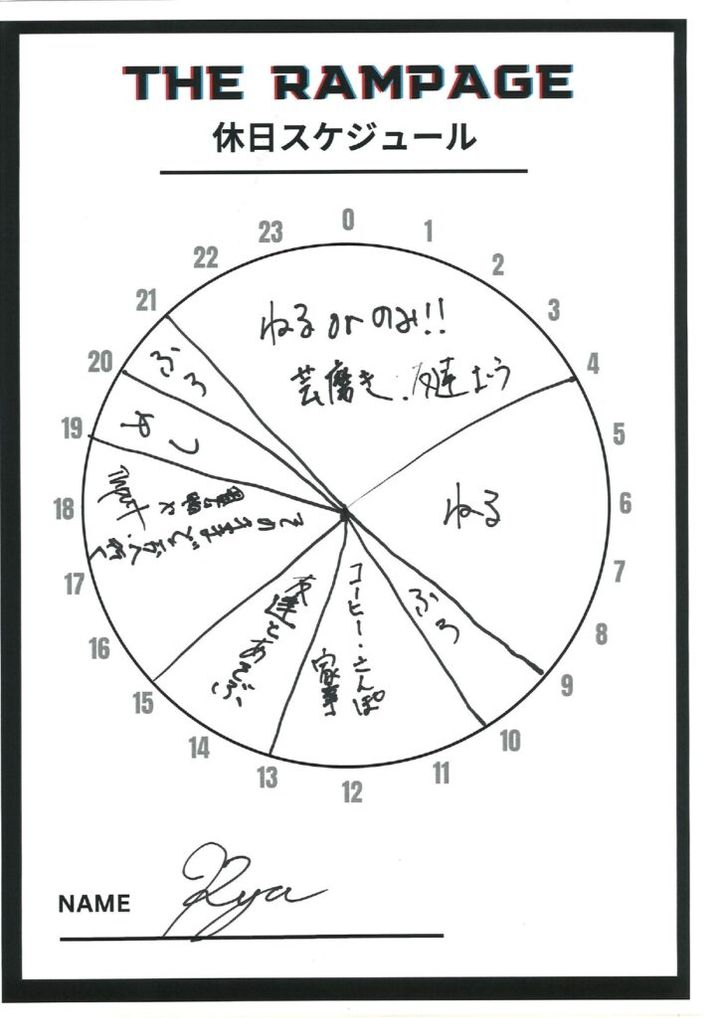 THE RAMPAGE
休日スケジュール
0
1
2
3
4
5
6
7
8
9
10
11
12
13
14
15
16
17
18
19
20
21
22
23
ねる or のみ!!
芸磨き.
ねる
ふろ
コーヒー・さんぽ
家事
友達とあそぶ
そのままどっか行く
めし
ふろ
NAME Rya